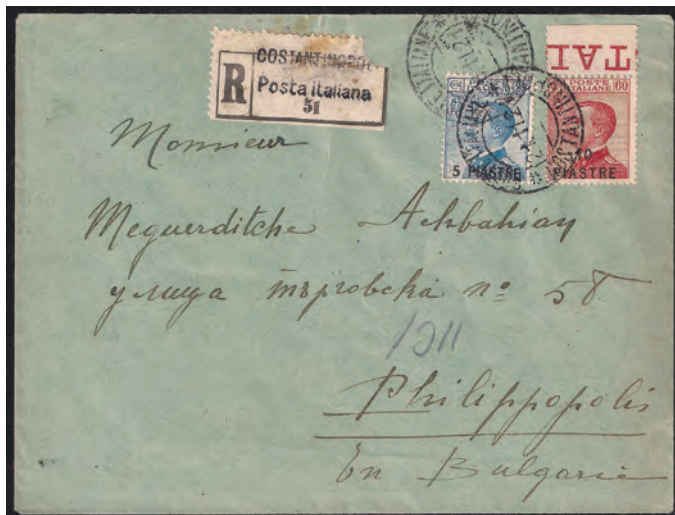 COSTANTINOPOLI
R Posta Italiana
51
TAI
POSTE ITALIANE 60
5 PIASTRE
10 PIASTRE
Monsieur
Meguerditche Achbahian
улица търговска № 58
1911
Philippopolis
En Bulgarie